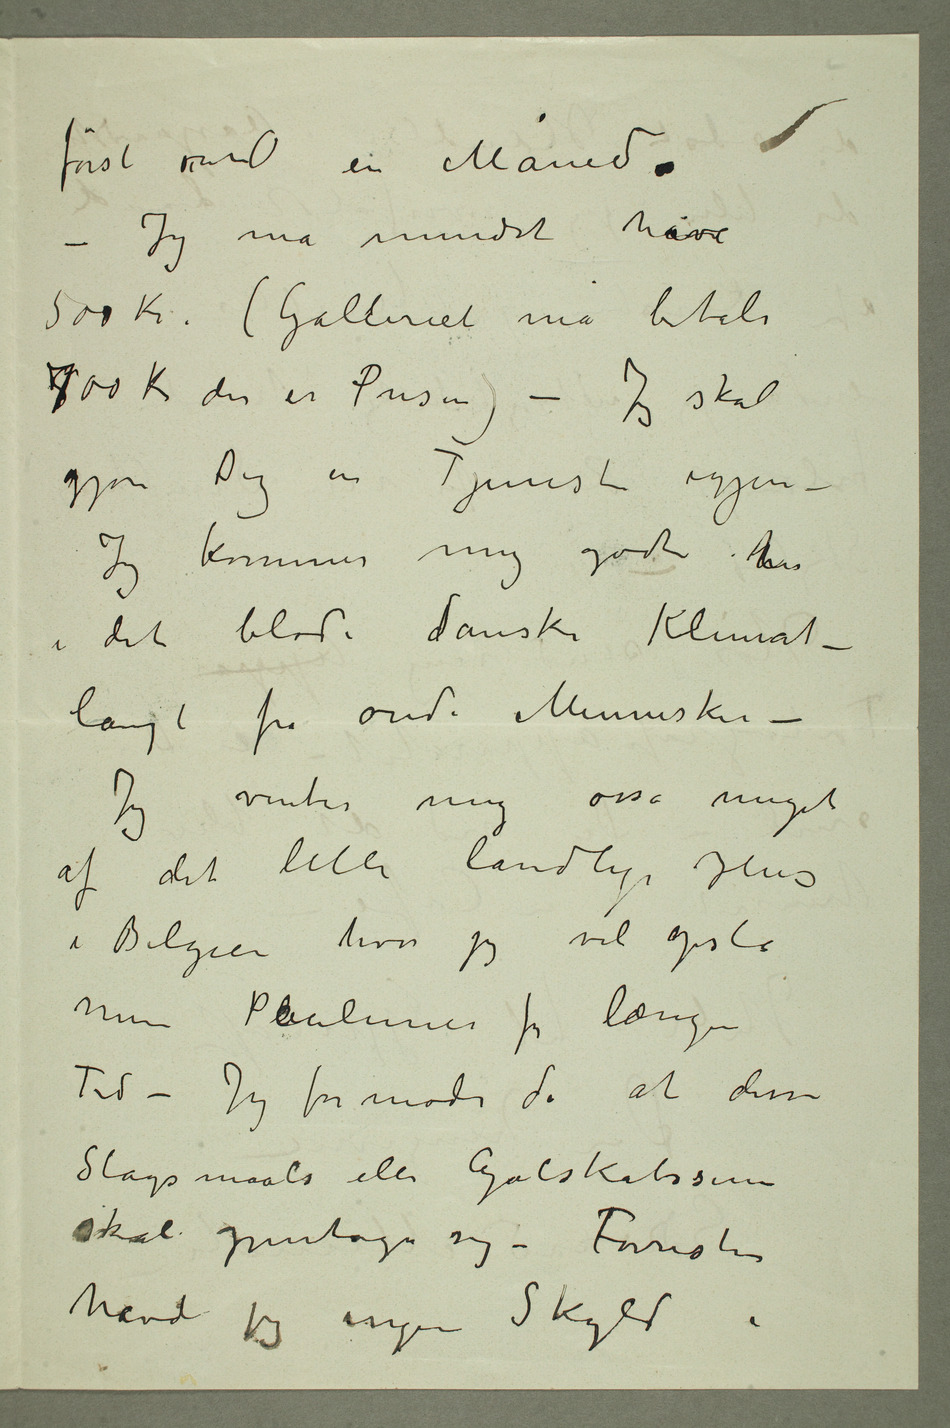 först om en Måned.
– Jeg må mindst have
500 Kr. (Galleriet må betale
700 Kr der er Prisen) – Jeg skal
gjøre Dig en Tjeneste igjen –
Jeg kommer mig godt her
i det bløde danske Klimat –
langt fra onde Mennesker –
Jeg venter mig også meget
af det lille landlige Hus
i Belgien hvor jeg vil opslå
mine Pauluner for længere
Tid – Jeg formoder da at disse
Slagsmaals eller Galskabsscener
skal gjentage sig – Forresten
havde jeg ingen Skyld i